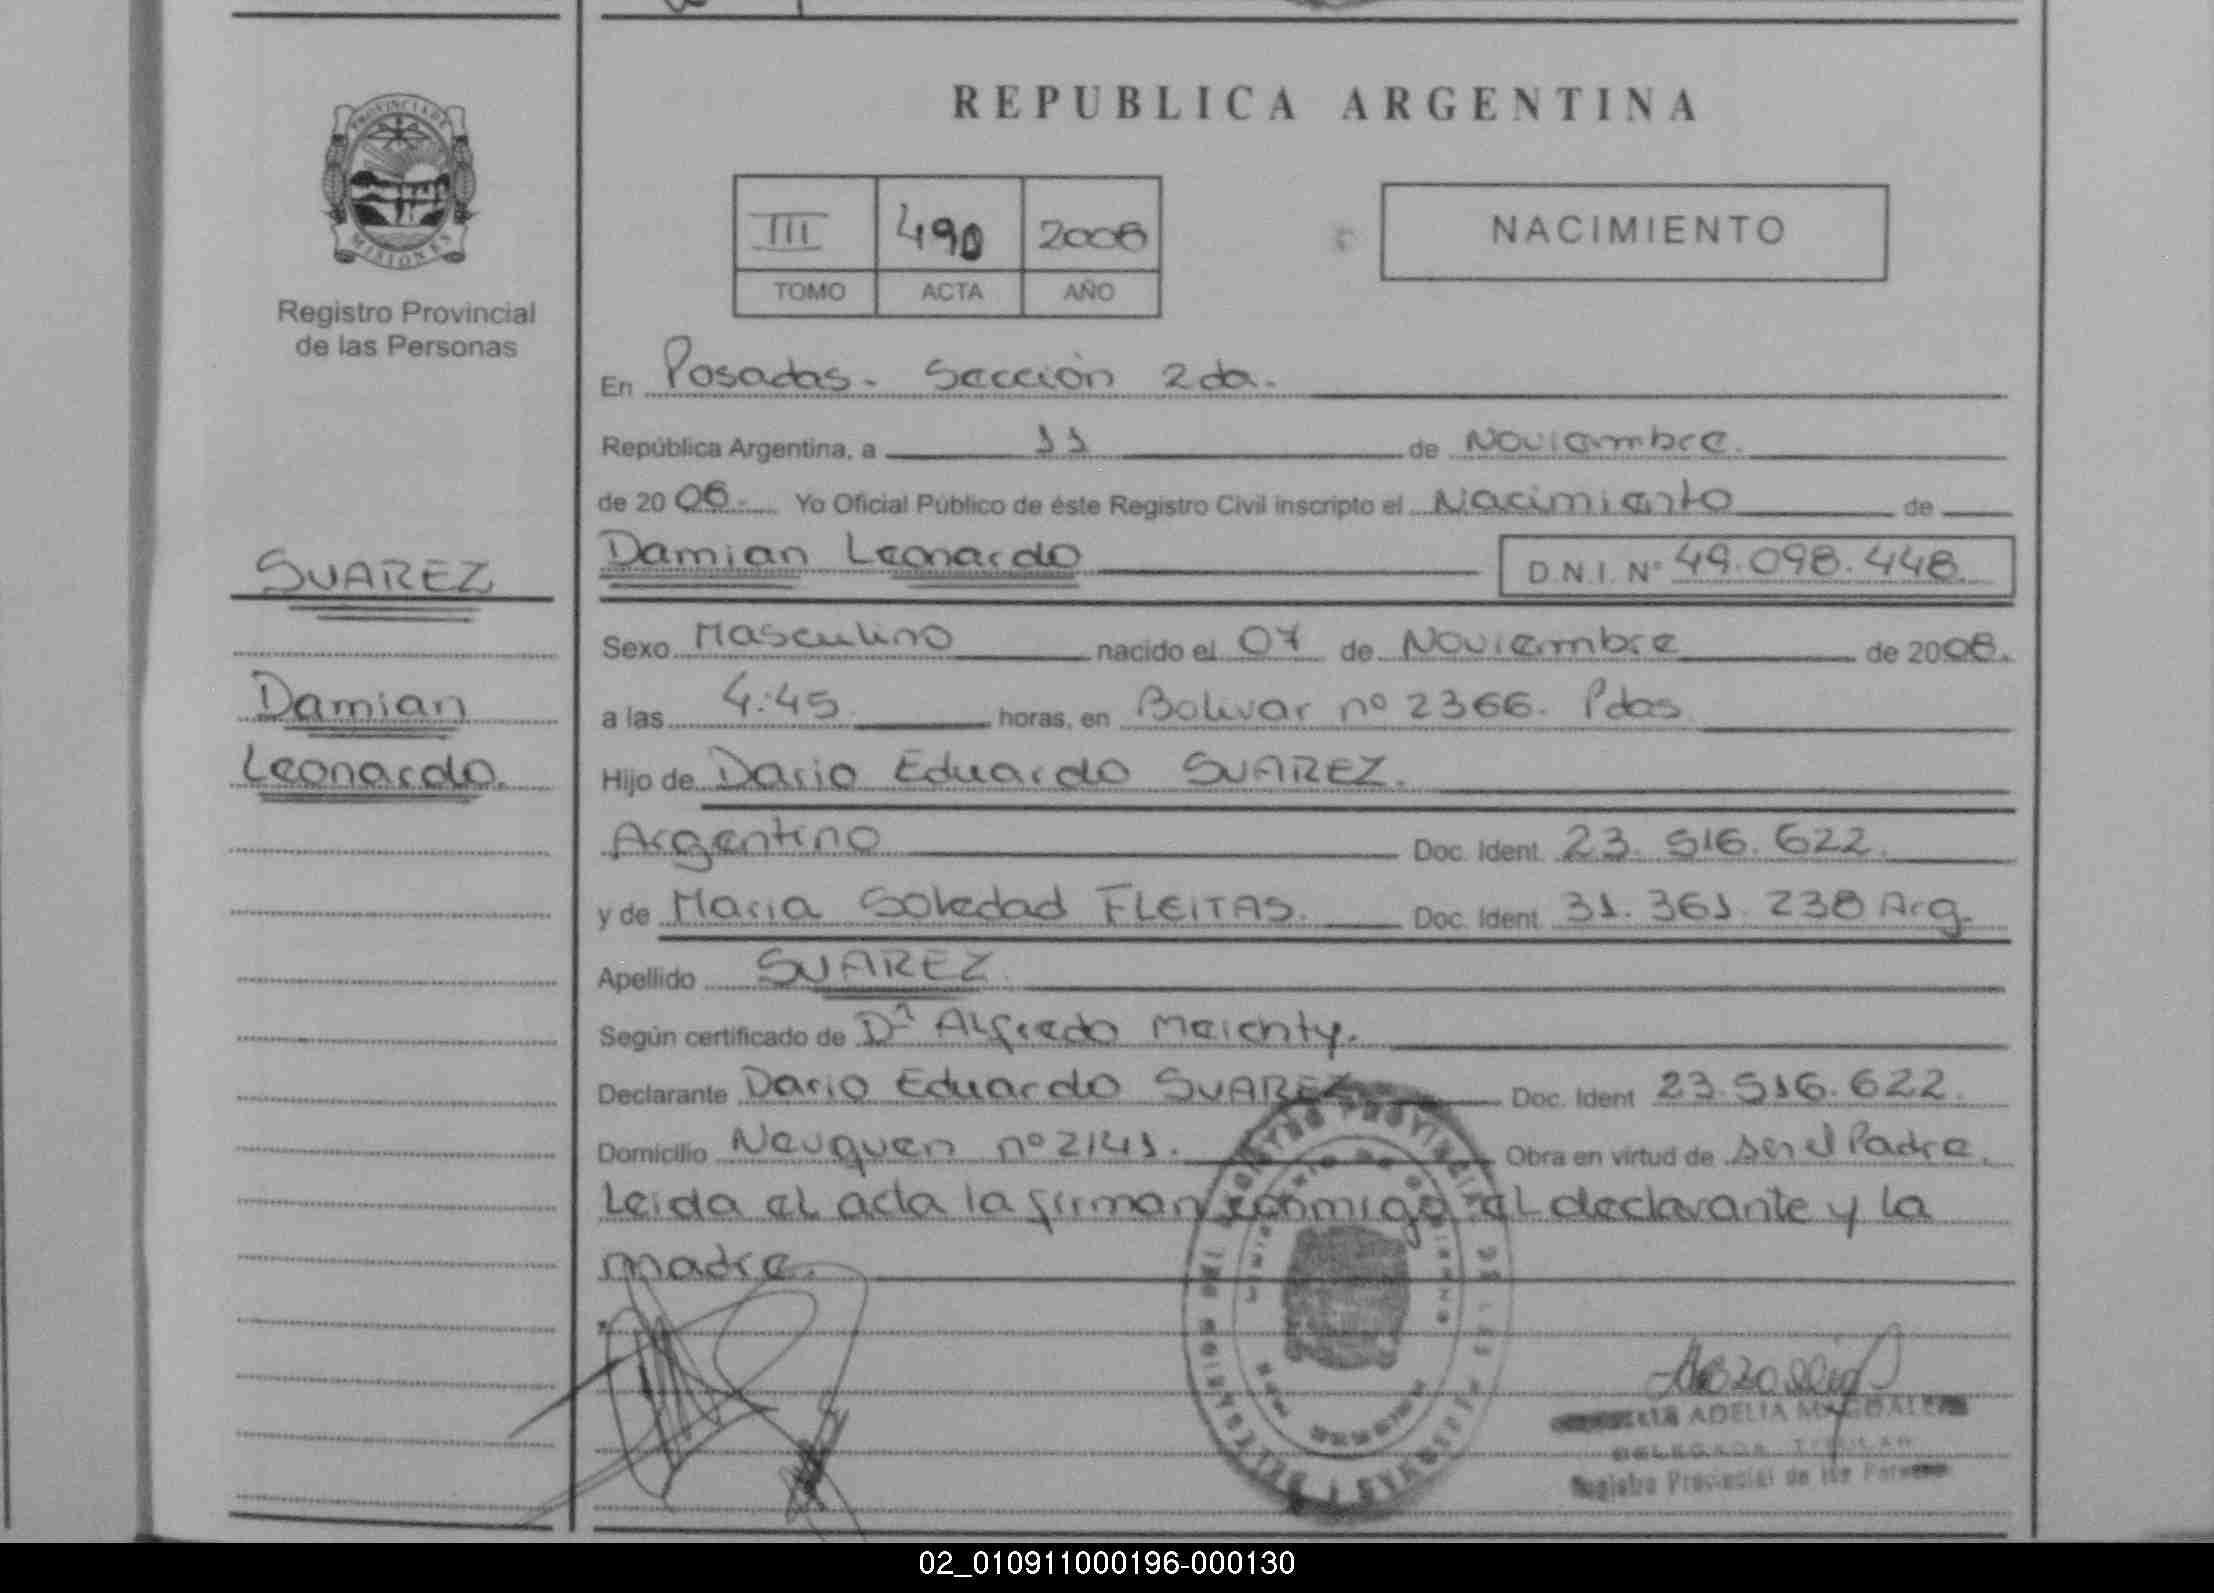 REPUBLICA ARGENTINA
PROVINCIA DE
MISIONES
Registro Provincial
de las Personas
III 490 2008
TOMO ACTA AÑO
NACIMIENTO
En Posadas. Sección 2da.
República Argentina, a 11 de Noviembre.
de 2008. Yo Oficial Público de éste Registro Civil inscripto el Nacimiento de
SUAREZ
Damian
Leonardo.
Damian Leonardo D.N.I. Nº 49.098.448.
Sexo Masculino nacido el 07 de Noviembre de 2008.
a las 4:45 horas, en Bolivar nº 2366. Pdas
Hijo de Dario Eduardo SUAREZ.
Argentino Doc. Ident. 23.516.622.
y de Maria Soledad FLEITAS. Doc. Ident. 31.361.238 Arg.
Apellido SUAREZ.
Según certificado de Dr Alfredo
Declarante Dario Eduardo SUAREZ Doc. Ident 23.516.622.
Domicilio Neuquen nº 2141. Obra en virtud de ser el Padre.
Leida el acta la firman conmigo el declarante y la
madre.
ADELIA MAGDALENA
DELEGADA TITULAR
Registro Provincial de las Personas
02_010911000196-000130